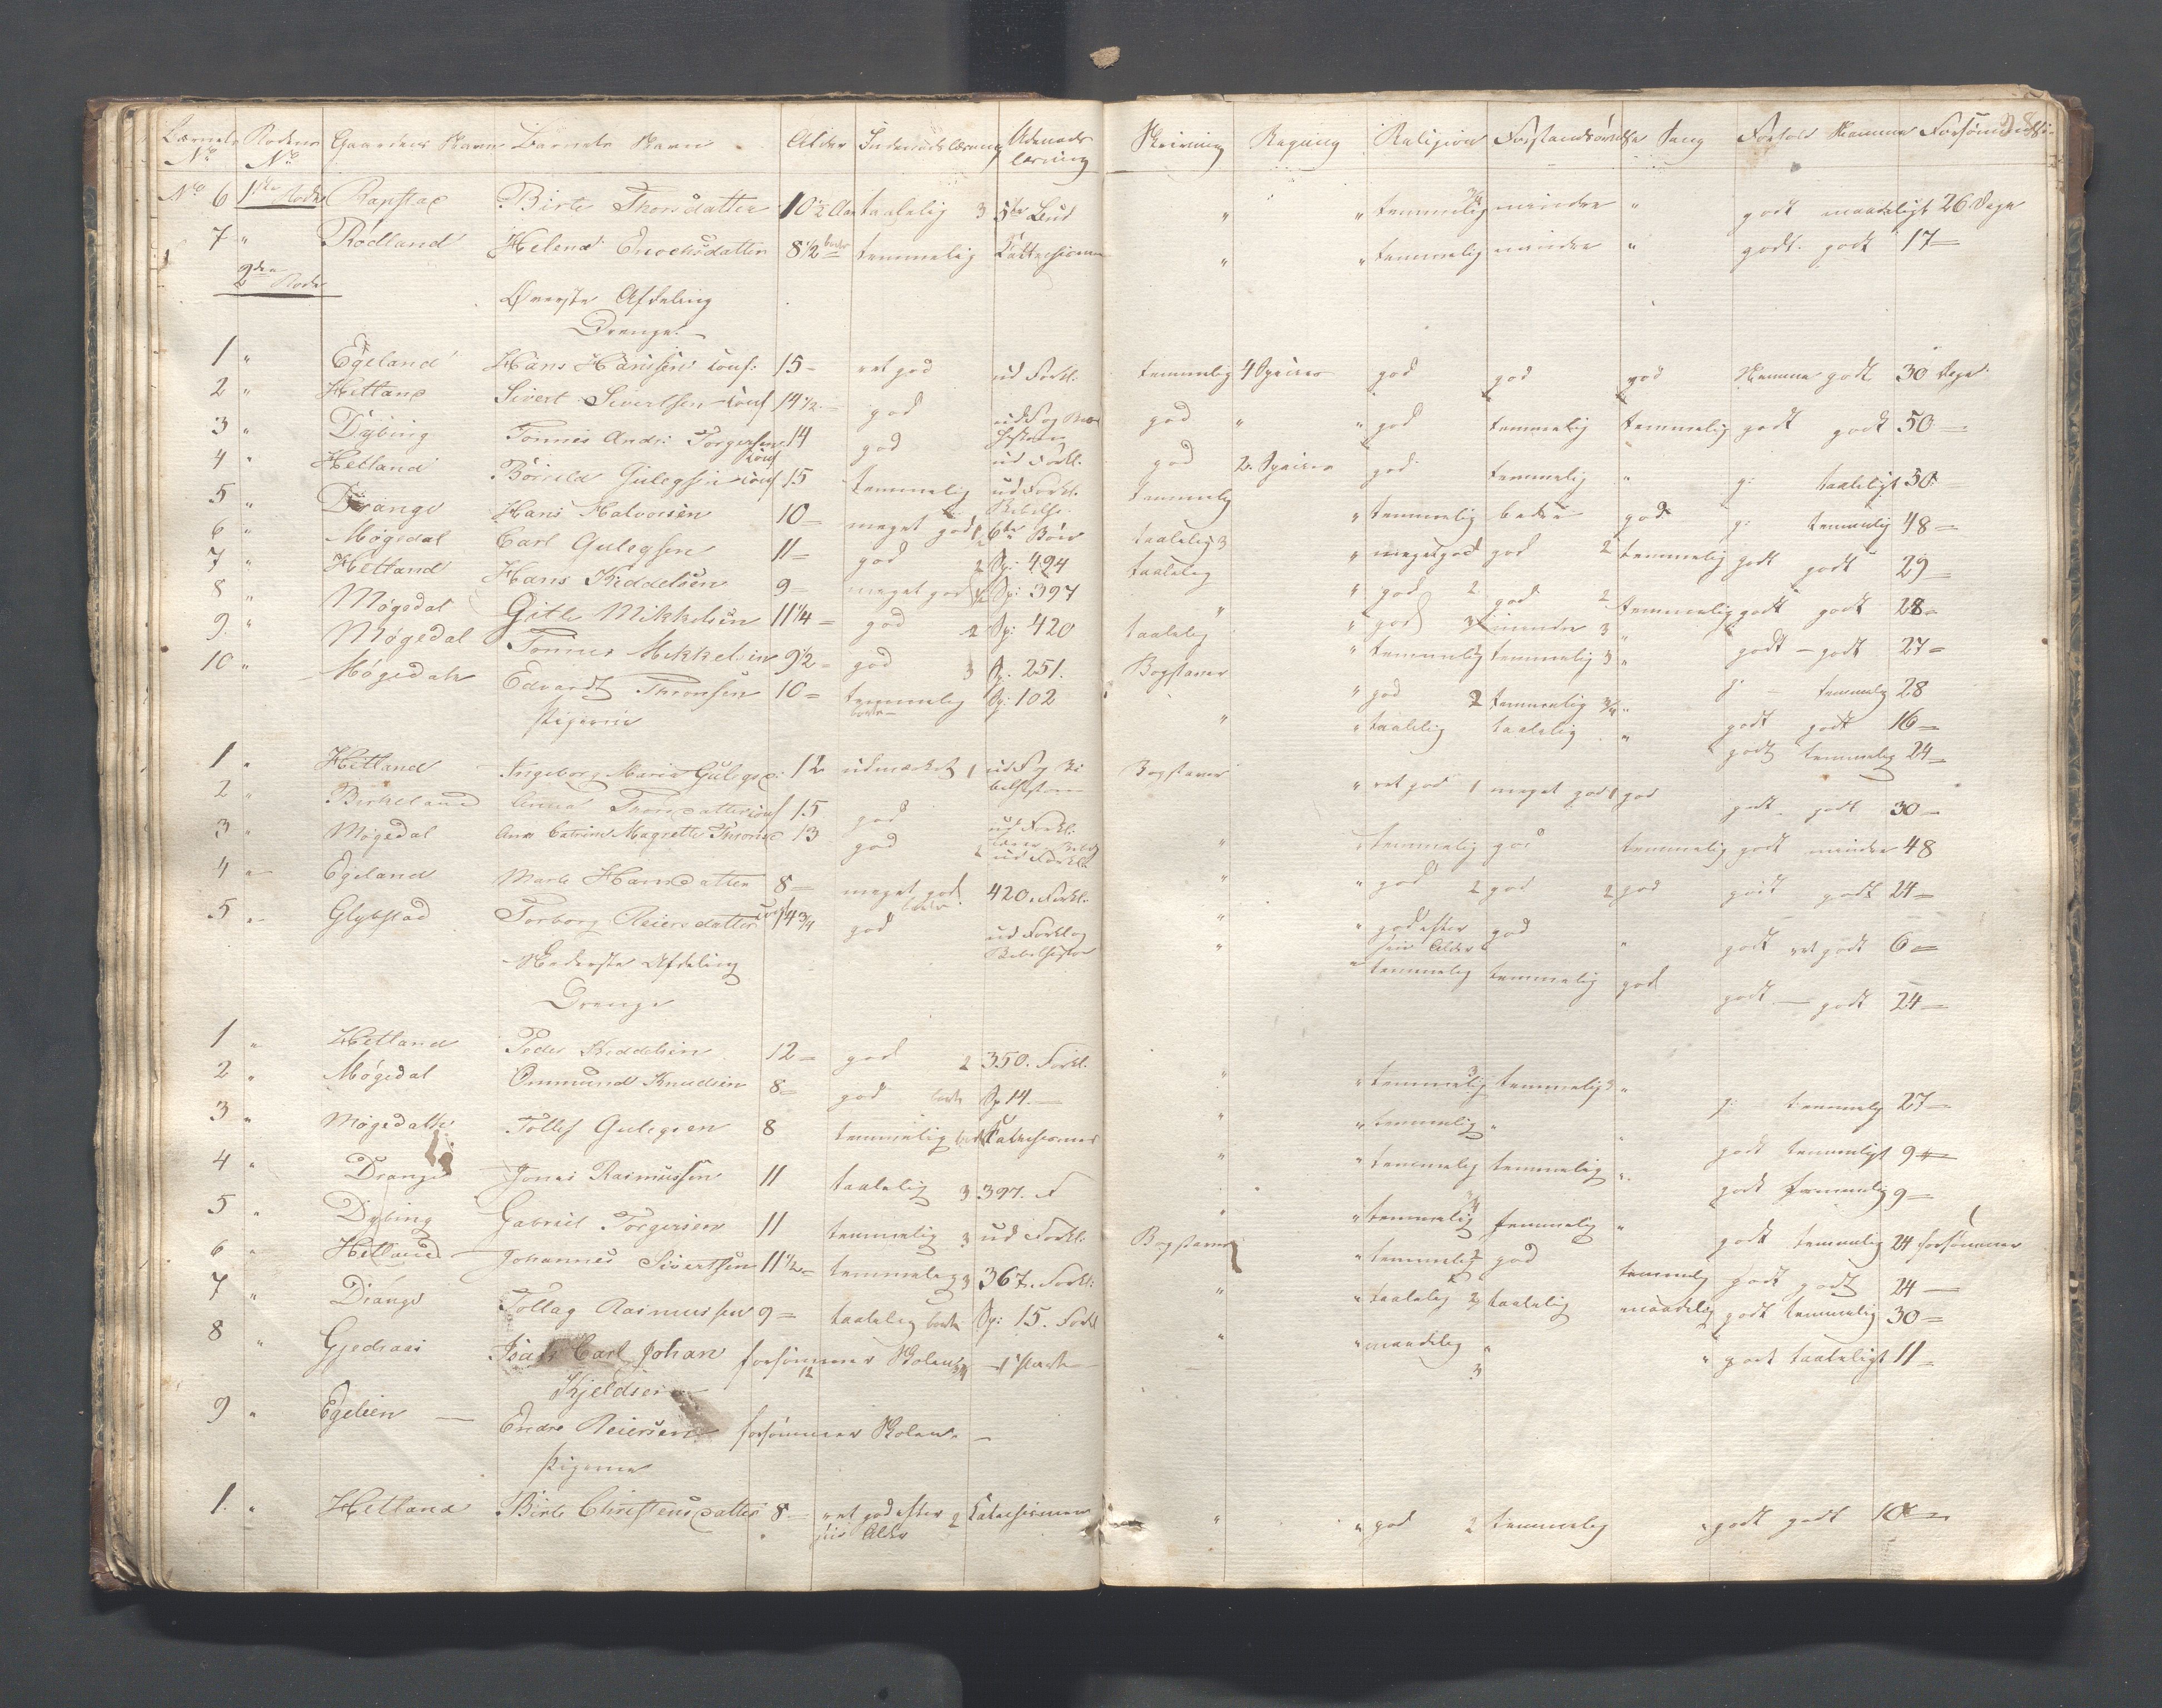 Barnets No Rodens No Gaardens Navn Barnets Navn Alder Indenadslæsning Udenads læsning Skrivning Regning Religion Forstandsøvelse Sang Forhold Nemme Forsømmelser 98
No 6 1ste Rode Rapstad Birte Thorsdatter 10 1/2 Aar taalelig 3 5te Bud " " temmelig 3/4 mindre " godt maadeligt 26 Dage
7 " Rødland Helena Enochsdatter 8 1/2 temmelig Cattechismen " " temmelig mindre " godt godt 17 —
2den Rode
Øverste Afdeling
Drenge
1 " Egeland Hans Hansen conf: 15 — ret god ud Forkl. temmelig 4 Specier god god god Nemme godt 30 Dage
2 " Hetland Sivert Sivertsen conf 14 1/2 — god god " " god temmelig temmelig godt godt 50 —
3 " Dybing Tønnes Andr: Torgersen conf 14 god ud Forkl. god 2 Specier god temmelig " g: taaleligt 50 —
4 " Hetland Børuld Gulegsen conf 15 temmelig ud Forkl. Bibelhi. temmelig " temmelig bedre god g: temmelig 48 —
5 " Drange Hans Halvorsen 10 — meget god 1/2 6te Bøn taalelig 3 " meget god god 2 temmelig godt godt 29 —
6 " Møgedal Carl Gulegsen 11 — god 2 Sp: 494 taalelig " god 2 god 2 temmelig godt godt 28 —
7 " Hetland Hans Kiddelsen 9 — meget god 1/2 Sp: 397 " " god 3 mindre 3 " godt — godt 27 —
8 " Møgedal Gitle Mikkelsen 11 1/4 — god 2 Sp: 420 taalelig " temmelig temmelig 3 " g: — temmelig 28
9. " Møgedal Tønnes Mikkelsen 9 1/2 — god 3 Sp. 251. Bogstaver " god 2 temmelig 3/4 " godt godt 16 —
10 " Møgedal Edvardt Thronsen 10 — temmelig Sp: 102 " " taalelig taalelig " godt temmelig 24 —
Pigerne
1 " Hetland Ingeborg Maria Gulegsd: 12 udmærket 1 ud F og Bi belhistorie Bogstaver " ret god 1 meget god 1 god godt godt 30 —
2 " Birkeland Anna Tronsdatter conf 15 god ud Forkl: " temmelig god temmelig godt mindre 48
3 " Møgedal Ane Catrine Magrethe Thronsd 13 god 2 ud Forkl. " " god 2 god 2 god godt godt 24 —
4 " Egeland Marte Hansdatter 8 — meget god 420. Forkl. " " god efter sin Alder god " godt ret godt 6 —
5 " Glypstad Torborg Reiersdatter conf 14 3/4 god ud Forkl og Bibelhistor " " temmelig temmelig god godt — godt 24 —
Nederste Afdeling
Drenge
1 " Hetland Peder Kiddelsen 12 — god 2 350. Forkl. " " temmelig 3 temmelig 3 " g: temmelig 27 —
2 " Møgedal Ommund Knudsen 8 — god Sp 14. — " " temmelig " " godt temmeligt 9 —
3 " Møgedal Tollef Gulegsen 8 temmelig Catechismus " " temmelig temmelig " godt temmelig 9 —
4 " Drange Jonas Rasmussen 11 taalelig 3 397. F " " temmelig 3/4 temmelig " godt temmelig 24 forsømmer
5 " Dybing Gabriel Torgersen 11 temmelig 3 ud Forkl: Bogstaver " temmelig 2 god temmelig godt godt 24 —
6 " Hetland Johannes Sivertsen 11 1/2 — temmelig 3 367. Forkl: " " taalelig 2 taalelig maadelig godt temmelig 30 —
7 " Drange Tollag Rasmussen 9 — taalelig Sp: 15. Forkl " " maadelig " 3 " godt taaleligt 11 —
8 " Gjedraas Isak Carl Johan Kjeldsen forsømmer Skolen 12 — 1 Part — —
9 " Egelien — Endre Reiersen forsømmer Skolen. —
Pigerne
1. " Hetland Birte Christensdatter 8 — ret god efter sin Alder 2 Catechismen " " god 2 temmelig " godt godt 10 —